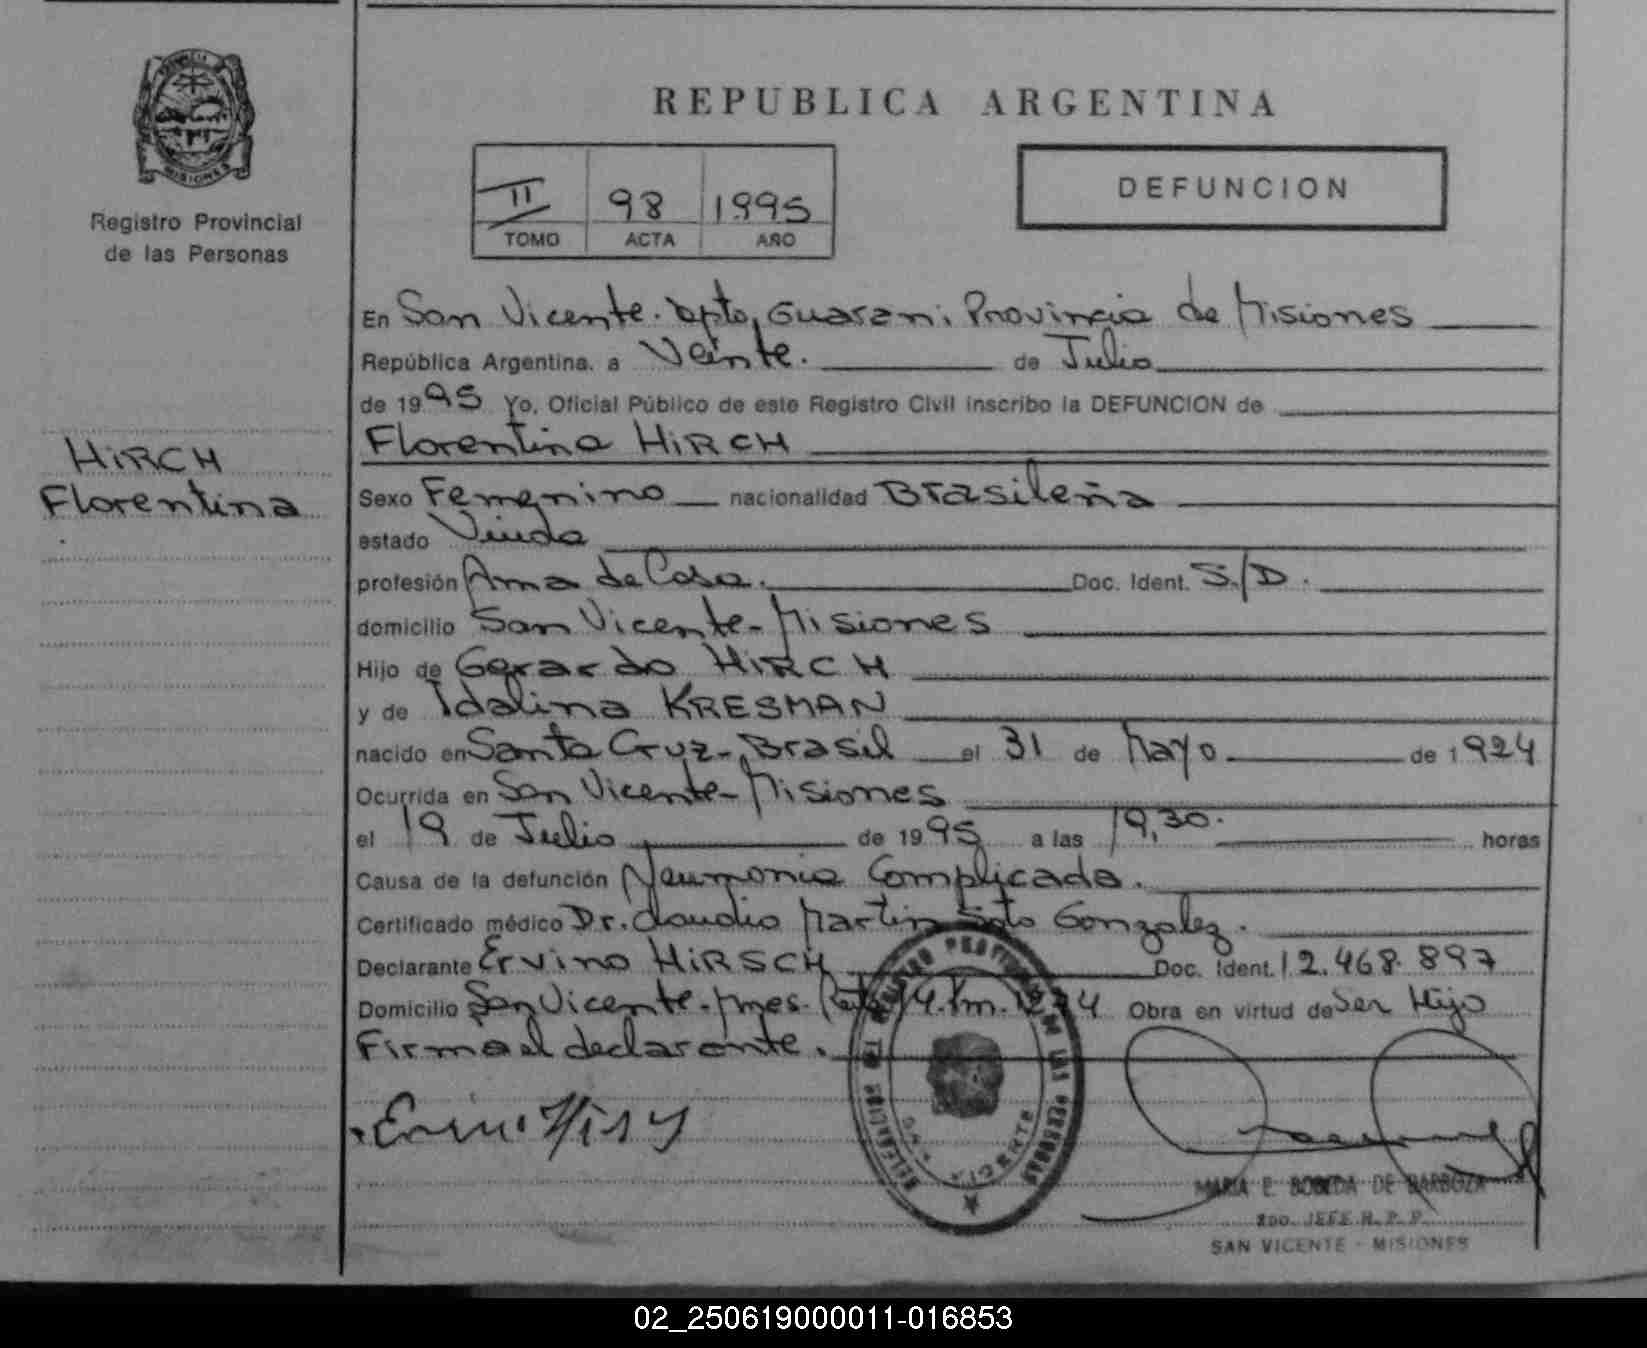 REPUBLICA ARGENTINA
MISIONES
Registro Provincial
de las Personas
II 98 1995
TOMO ACTA AÑO
DEFUNCION
En San Vicente. Dpto, Guarani Provincia de Misiones
República Argentina, a Veinte. de Julio
de 1995 Yo, Oficial Público de este Registro Civil inscribo la DEFUNCION de
Florentina HiRCH
HiRCH
Florentina
Sexo Femenino nacionalidad Brasileña
estado Viuda
profesión Ama de Casa. Doc. Ident. S/D.
domicilio San Vicente-Misiones
Hijo de Gerardo HiRCH
y de Idalina KRESMAN
nacido en Santa Cruz-Brasil el 31 de Mayo de 1924
Ocurrida en San Vicente-Misiones
el 19 de Julio de 1995 a las 19,30. horas
Causa de la defunción Neumonia Complicada.
Certificado médico Dr. Claudio Martin Soto Gonzalez.
Declarante Ervino HiRSCH Doc. Ident. 12.468.897
Domicilio San Vicente-Mnes. 14. Km. Obra en virtud de Ser Hijo
Firma el declarante.
MARIA E. BOBEDA DE BARBOZA
2DO. JEFE R. P. P.
SAN VICENTE - MISIONES
02_250619000011-016853